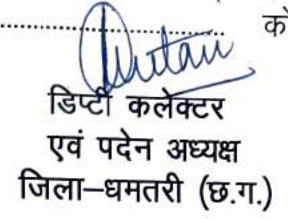 को
डिप्टी कलेक्टर
एवं पदेन अध्यक्ष
जिला–धमतरी (छ.ग.)